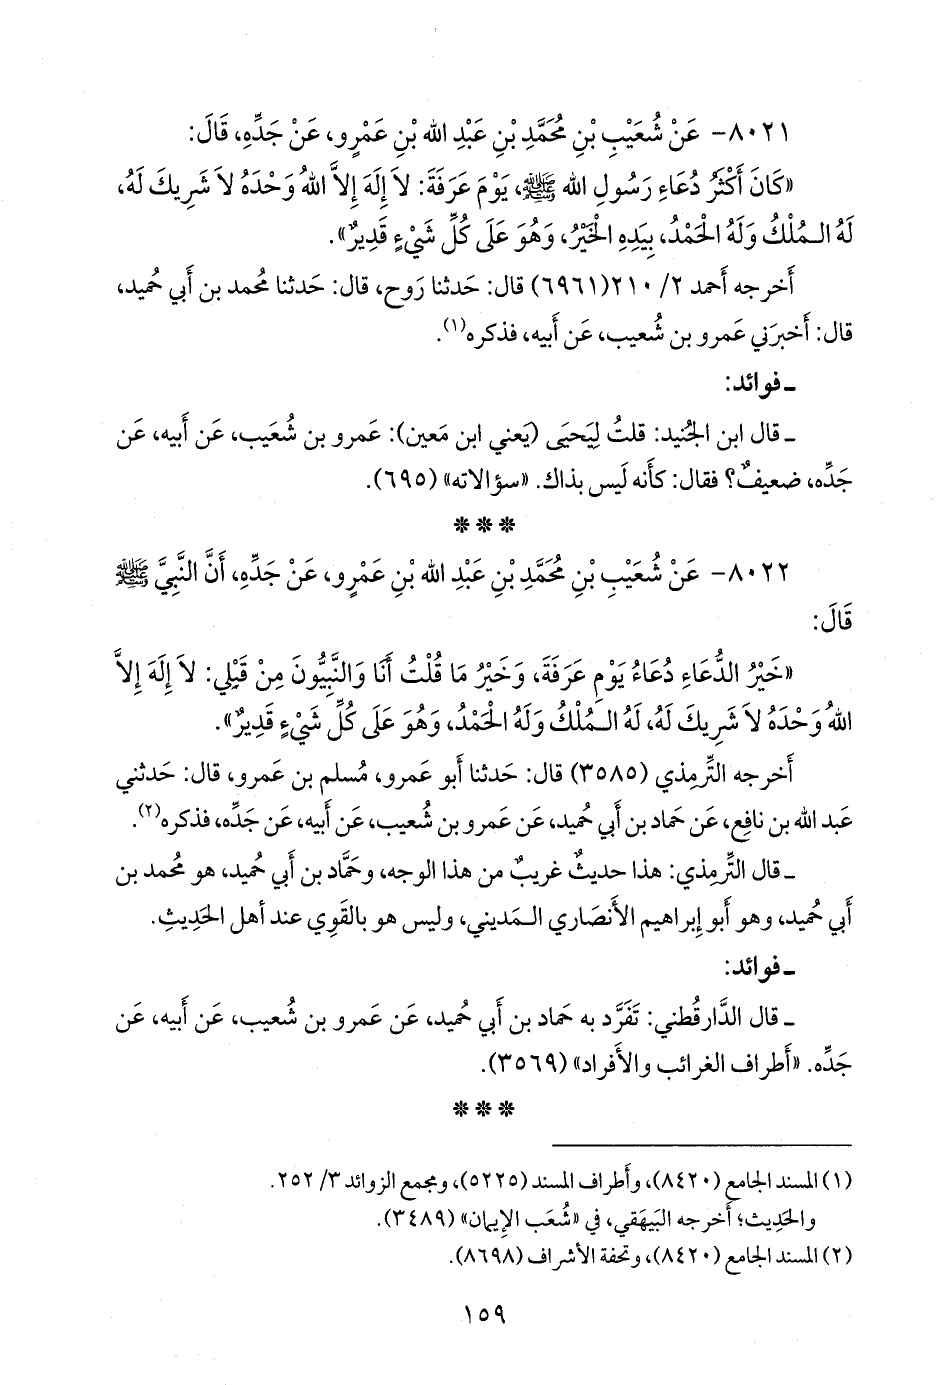 ٨٠٢١- عَنْ شُعَيْبِ بْنِ مُحَمَّدِ بْنِ عَبْدِ الله بْنِ عَمْرٍو، عَنْ جَدِّهِ، قَالَ:
«كَانَ أَكْثَرُ دُعَاءِ رَسُولِ الله ﷺ، يَوْمَ عَرَفَةَ: لاَ إِلَهَ إِلاَّ اللهُ وَحْدَهُ لاَ شَرِيكَ لَهُ،
لَهُ الـمُلْكُ وَلَهُ الحَمْدُ، بِيَدِهِ الخَيْرُ، وَهُوَ عَلَى كُلِّ شَيْءٍ قَدِيرٌ».
أَخرجه أَحمد ٢/ ٢١٠(٦٩٦١) قال: حَدثنا رَوح، قال: حَدثنا مُحمد بن أَبي حُميد،
قال: أَخبرَني عَمرو بن شُعيب، عَن أَبيه، فذكره(١).
ـ فوائد:
ـ قال ابن الجُنيد: قلتُ لِيَحيَى (يَعني ابن مَعين): عَمرو بن شُعَيب، عَن أَبيه، عَن
جَدِّه، ضعيفٌ؟ فقال: كأَنه لَيس بذاك. «سؤالاته» (٦٩٥).
***
٨٠٢٢- عَنْ شُعَيْبِ بْنِ مُحَمَّدِ بْنِ عَبْدِ الله بْنِ عَمْرٍو، عَنْ جَدِّهِ، أَنَّ النَّبِيَّ ﷺ
قَالَ:
«خَيْرُ الدُّعَاءِ دُعَاءُ يَوْمِ عَرَفَةَ، وَخَيْرُ مَا قُلْتُ أَنَا وَالنَّبِيُّونَ مِنْ قَبْلِي: لاَ إِلَهَ إِلاَّ
اللهُ وَحْدَهُ لاَ شَرِيكَ لَهُ، لَهُ الـمُلْكُ وَلَهُ الحَمْدُ، وَهُوَ عَلَى كُلِّ شَيْءٍ قَدِيرٌ».
أَخرجه التِّرمِذي (٣٥٨٥) قال: حَدثنا أَبو عَمرو، مُسلم بن عَمرو، قال: حَدثني
عَبد الله بن نافِع، عَن حَماد بن أَبي حُميد، عَن عَمرو بن شُعيب، عَن أَبيه، عَن جَدِّه، فذكره(٢).
ـ قال التِّرمِذي: هذا حديثٌ غريبٌ من هذا الوجه، وحَمَّاد بن أَبي حُميد، هو مُحمد بن
أَبي حُميد، وهو أَبو إِبراهيم الأَنصَاري الـمَديني، وليس هو بالقَوِي عند أهل الحَدِيثِ.
ـ فوائد:
ـ قال الدَّارقُطني: تَفَرَّد به حَماد بن أَبي حُميد، عَن عَمرو بن شُعيب، عَن أَبيه، عَن
جَدِّه. «أَطراف الغرائب والأَفراد» (٣٥٦٩).
***
(١) المسند الجامع (٨٤٢٠)، وأَطراف المسند (٥٢٢٥)، ومجمع الزوائد ٣/ ٢٥٢.
والحَدِيث؛ أَخرجه البَيهَقي، في «شُعَب الإِيمان» (٣٤٨٩).
(٢) المسند الجامع (٨٤٢٠)، وتحفة الأشراف (٨٦٩٨).
١٥٩